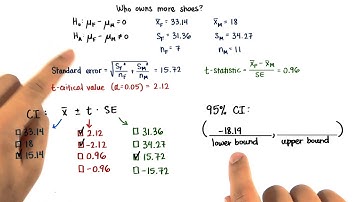 Who owns more shoes?
H₀: μ_F − μ_M = 0
x̄_F = 33.14 x̄_M = 18
H_A: μ_F − μ_M ≠ 0
S_F = 31.36 S_M = 34.27
n_F = 7 n_M = 11
Standard error = √(S_F²/n_F + S_M²/n_M) = 15.72
t-statistic = (x̄_F − x̄_M)/SE = 0.96
t-critical value (α=0.05) = 2.12
CI: x̄ ± t · SE
95% CI:
33.14 2.12 31.36
18 -2.12 34.27
15.14 0.96 15.72
-0.96 -15.72
( -18.19 , )
lower bound upper bound